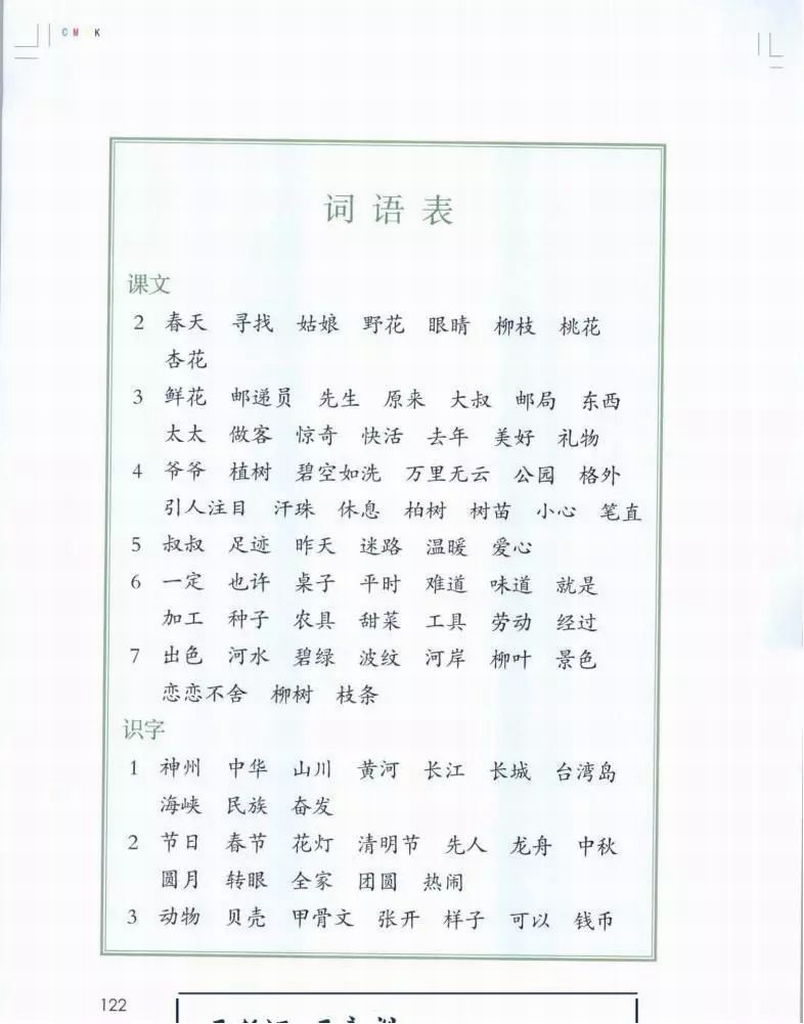 CM K
词语表
课文
2 春天 寻找 姑娘 野花 眼睛 柳枝 桃花
杏花
3 鲜花 邮递员 先生 原来 大叔 邮局 东西
太太 做客 惊奇 快活 去年 美好 礼物
4 爷爷 植树 碧空如洗 万里无云 公园 格外
引人注目 汗珠 休息 柏树 树苗 小心 笔直
5 叔叔 足迹 昨天 迷路 温暖 爱心
6 一定 也许 桌子 平时 难道 味道 就是
加工 种子 农具 甜菜 工具 劳动 经过
7 出色 河水 碧绿 波纹 河岸 柳叶 景色
恋恋不舍 柳树 枝条
识字
1 神州 中华 山川 黄河 长江 长城 台湾岛
海峡 民族 奋发
2 节日 春节 花灯 清明节 先人 龙舟 中秋
圆月 转眼 全家 团圆 热闹
3 动物 贝壳 甲骨文 张开 样子 可以 钱币
122